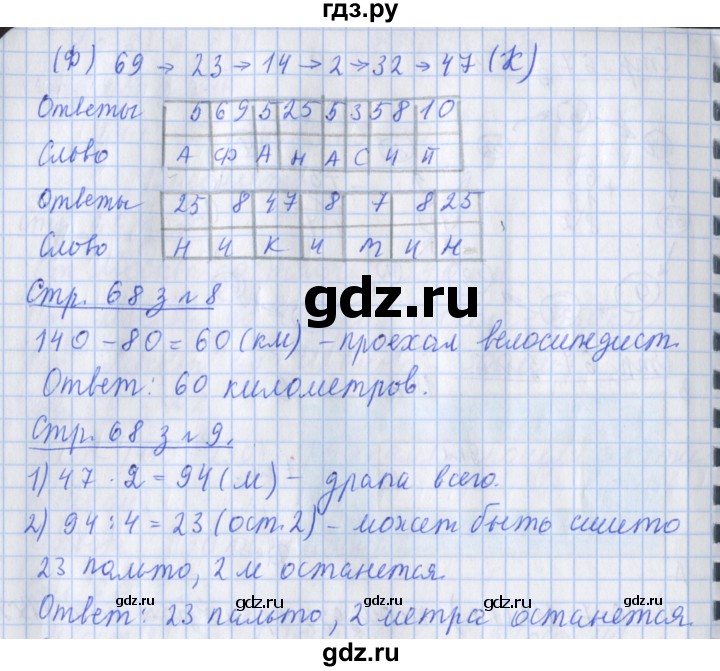 гдз.ру
(Ф) 69 → 23 → 14 → 2 → 32 → 47 (К)
Ответы 5 69 5 25 5 3 5 8 10
Слово А Ф А Н А С И Й
Ответы 25 8 47 8 7 8 25
Слово Н И К И Т И Н
Стр. 68 з № 8
gdz.ru
140 - 80 = 60 (км) - проехал велосипедист.
Ответ: 60 километров.
Стр. 68 з № 9.
1) 47 · 2 = 94 (м) - драпа всего.
2) 94 : 4 = 23 (ост. 2) - может быть сшито
23 пальто, 2 м останется.
gdz.ru gdz.ru gdz.ru
Ответ: 23 пальто, 2 метра останется.
gdz.ru